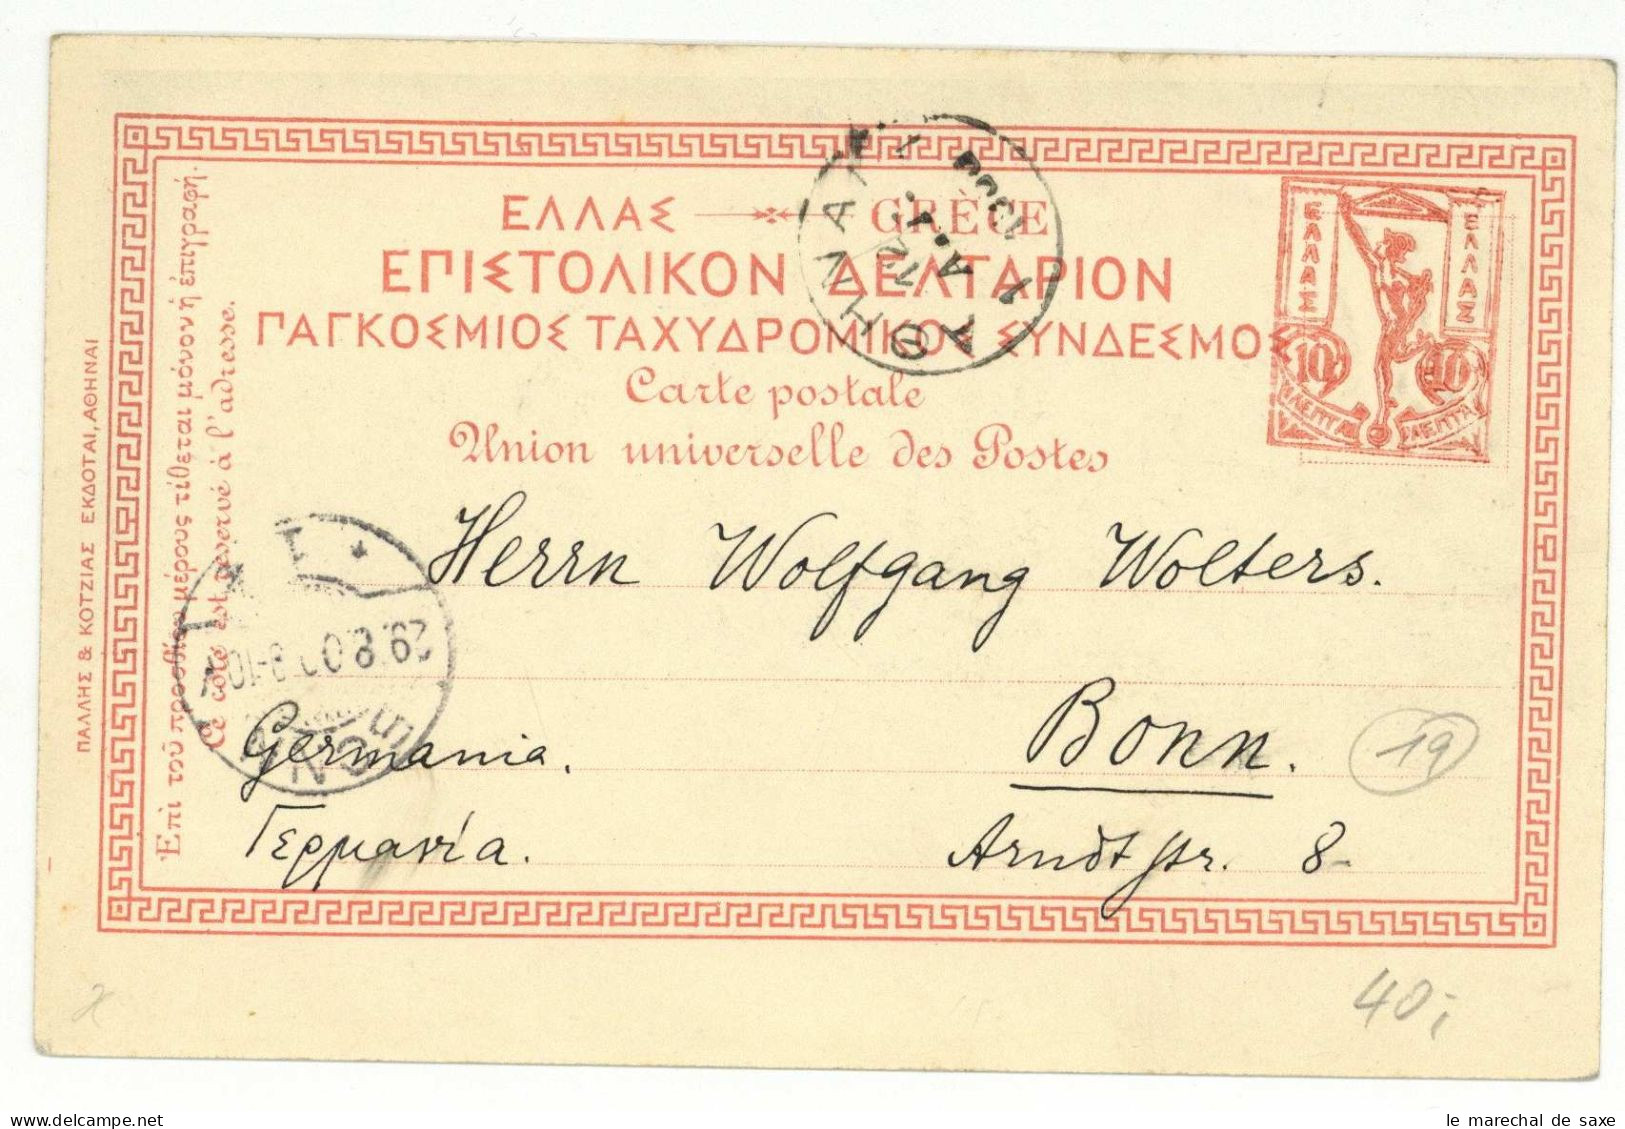 ΕΛΛΑΣ GRÈCE
ΕΠΙΣΤΟΛΙΚΟΝ ΔΕΛΤΑΡΙΟΝ
ΠΑΓΚΟΣΜΙΟΣ ΤΑΧΥΔΡΟΜΙΚΟΣ ΣΥΝΔΕΣΜΟΣ
Carte postale
Union universelle des Postes
ΕΛΛΑΣ
ΕΛΛΑΣ
10 10
ΛΕΠΤΑ ΛΕΠΤΑ
ΑΘΗΝΑΙ
ΠΑΛΛΗΣ & ΚΟΤΖΙΑΣ ΕΚΔΟΤΑΙ, ΑΘΗΝΑΙ
Ἐπὶ τοῦ προσθίου μέρους τίθεται μόνον ἡ ἐπιγραφή.
Ce côté est réservé à l'adresse.
Herrn Wolfgang Wolters.
BONN
Bonn.
19
Germania.
Γερμανία.
Arndtstr. 8
40,-
le marechal de saxe